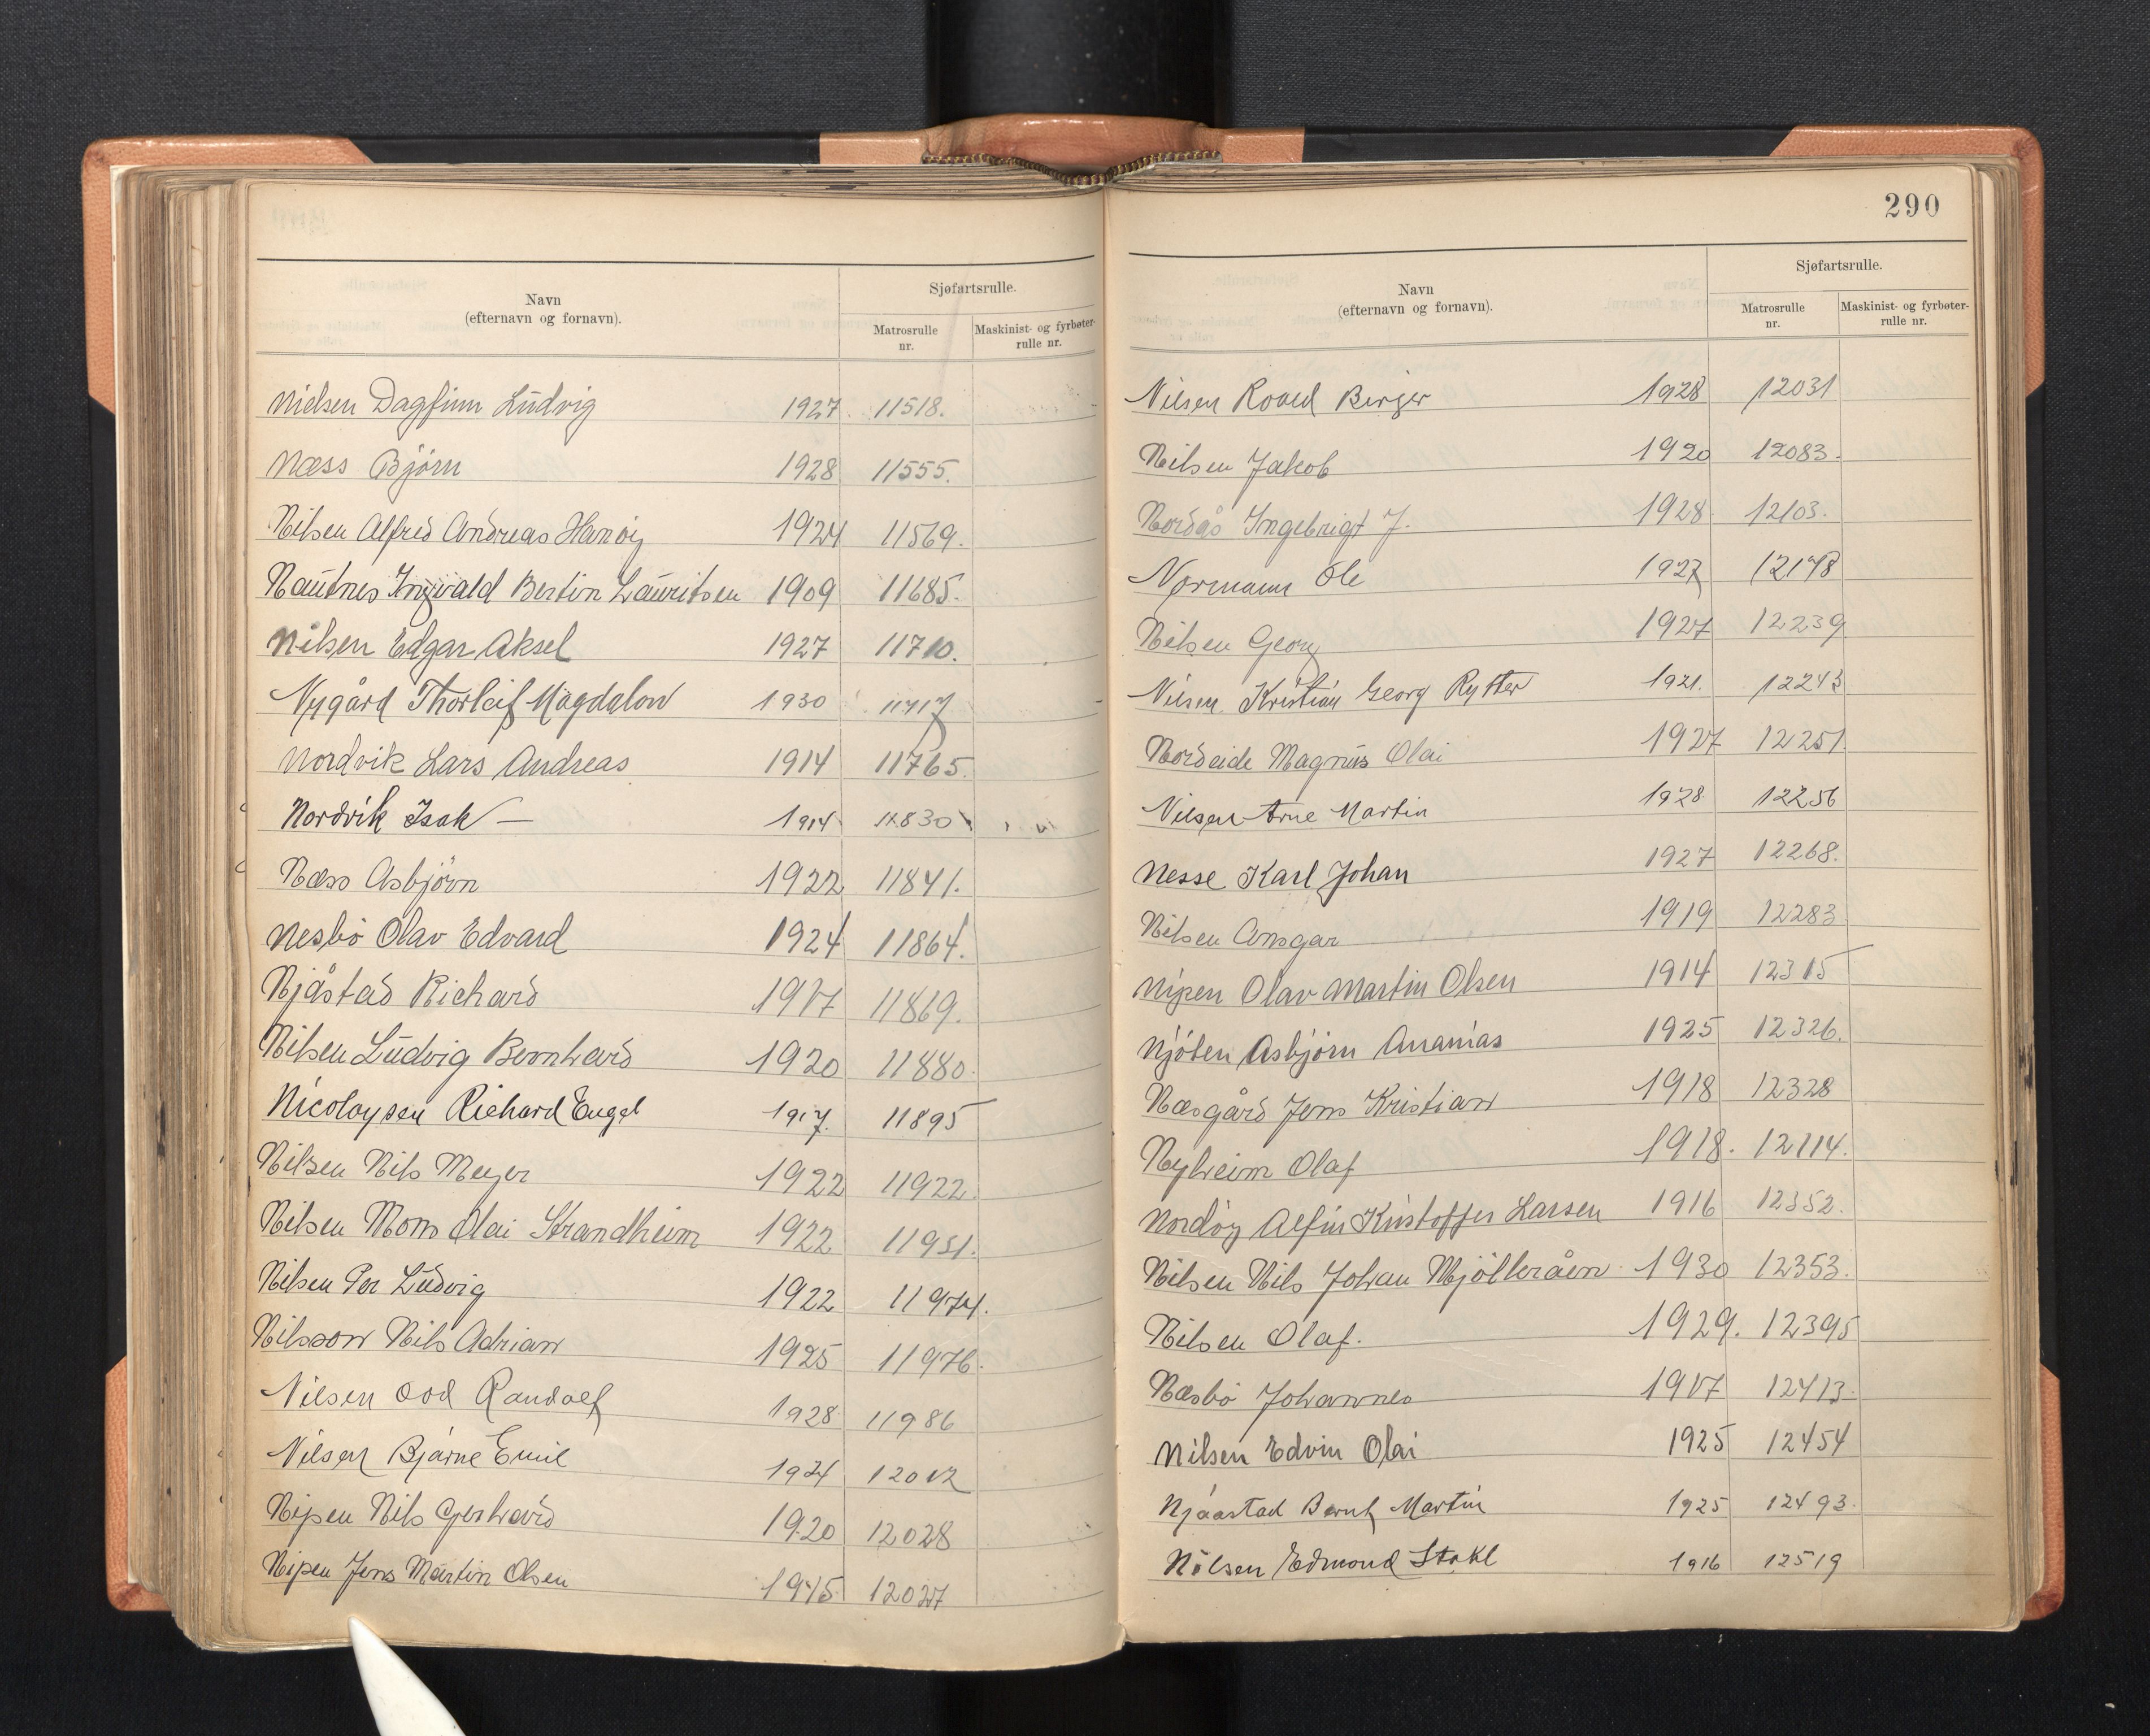 Navn
(efternavn og fornavn).
Sjøfartsrulle.
Matrosrulle
nr.
Maskinist- og fyrbøter-
rulle nr.
Nielsen Dagfinn Ludvig 1927. 11518.
Næss Bjørn 1928 11555.
Nilsen Alfred Andreas Hanøy 1924 11569.
Nautnes Ingvald Bertin Lauritsen 1909 11685.
Nilsen Edgar Aksel 1927 11710.
Nygård Thorleif Magdalon 1930 11717
Nordvik Lars Andreas 1914 11765.
Nordvik Isak — 1914 11830
Næss Asbjörn 1922 11841.
Nesbö Olav Edvard 1924 11864.
Njåstad Richard 1917 11869.
Nilsen Ludvig Bernhard 1920 11880.
Nicolaysen Richard Engel 1917. 11895
Nilsen Nils Meyer 1922 11922.
Nilsen Mons Olai Strandheim 1922 11951.
Nilsen Per Ludvig 1922 11974.
Nilsson Nils Adrian 1925 11976.
Nilsen Odd Randolf 1928 11986
Nilsen Bjarne Emil 1924 12012
Nipen Nils Gerhard 1920 12028
Nipen Jens Martin Olsen 1915 12027
290
Navn
(efternavn og fornavn).
Sjøfartsrulle.
Matrosrulle
nr.
Maskinist- og fyrbøter-
rulle nr.
Nilsen Roald Birger 1928 12031
Nilsen Jakob 1920 12083.
Nordås Ingebrigt J. 1928 12103.
Normann Ole 1927 12178
Nilsen Georg 1927 12239
Nilsen Kristian Georg Rytter 1921. 12243
Nordeide Magnus Olai 1927 12251
Nilsen Arne Martin 1928 12256
Nesse Karl Johan 1927 12268.
Nilsen Ansgar 1919 12283
Nipen Olav Martin Olsen 1914 12315
Njöten Asbjörn Ananias 1925 12326.
Næsgård Jens Kristian 1918 12328
Nyheim Olaf 1918. 12114.
Nordöy Alfin Kristoffer Larsen 1916 12352.
Nilsen Nils Johan Mjölleråen 1930 12353.
Nilsen Olaf. 1929. 12395
Næsbö Johannes 1917 12413
Nilsen Edvin Olai 1925 12454
Njåastad Bernt Martin 1925 12493.
Nilsen Edmond Stakl 1916 12519